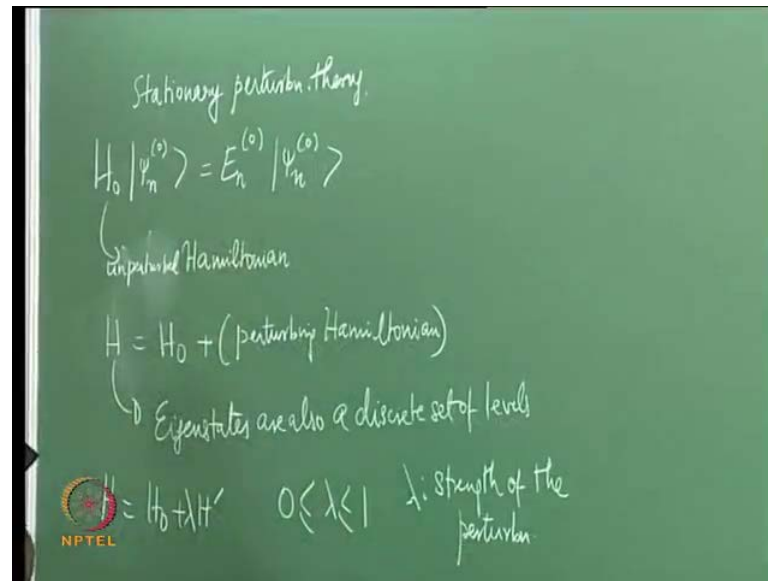 Stationary perturbn. theory.
H₀ |Ψₙ⁽⁰⁾⟩ = Eₙ⁽⁰⁾ |Ψₙ⁽⁰⁾⟩
unperturbed Hamiltonian
H = H₀ + (perturbing Hamiltonian)
Eigenstates are also a discrete set of levels
H = H₀ + λH′ 0 ≤ λ ≤ 1 λ: strength of the
perturbn.
NPTEL